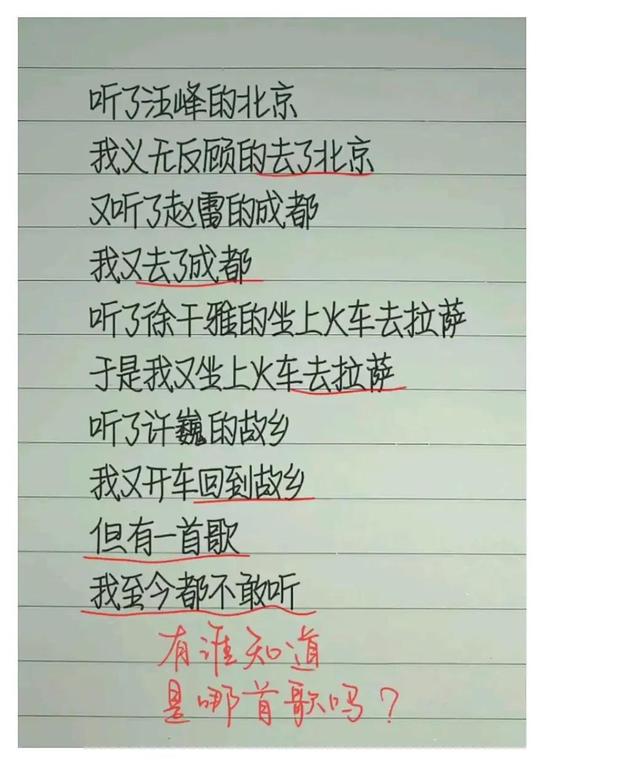 听了汪峰的北京
我义无反顾的去了北京
又听了赵雷的成都
我又去了成都
听了徐千雅的坐上火车去拉萨
于是我又坐上火车去拉萨
听了许巍的故乡
我又开车回到故乡
但有一首歌
我至今都不敢听
有谁知道
是哪首歌吗？